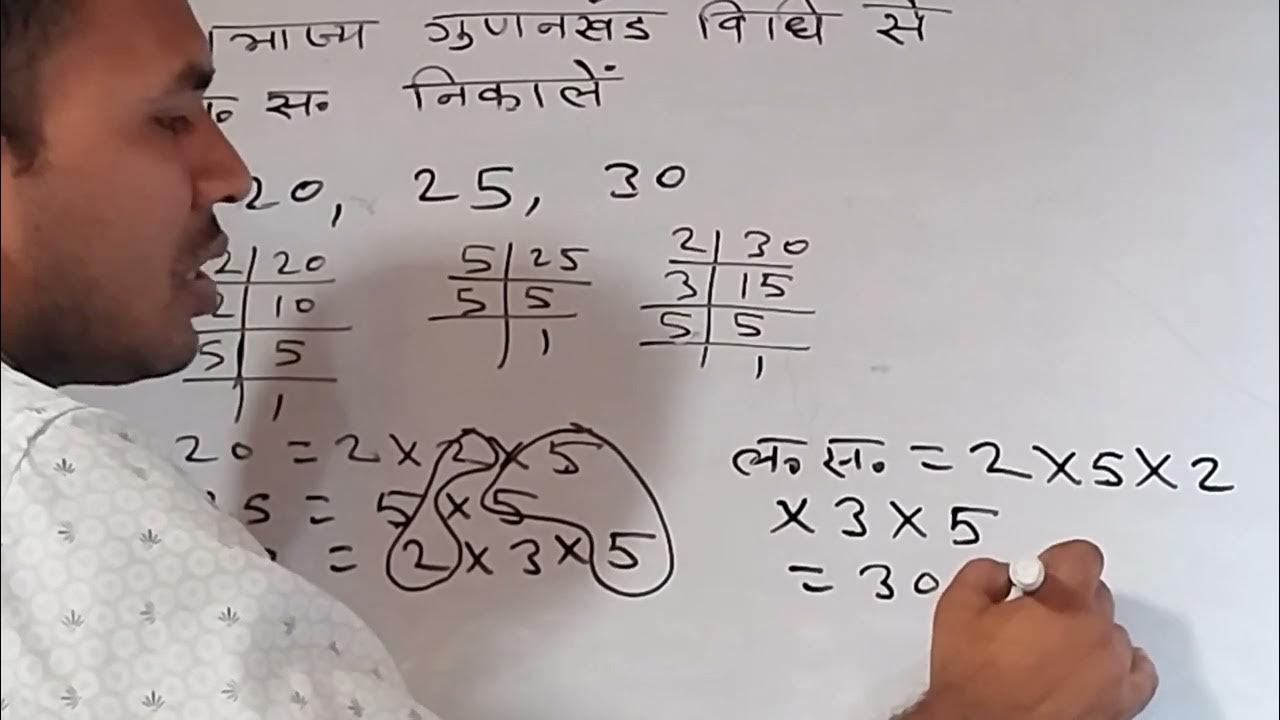 गुणनखंड विधि से
स॰ निकालें
20, 25, 30
2 | 20
2 | 10
5 | 5
1
5 | 25
5 | 5
1
2 | 30
3 | 15
5 | 5
1
20 = 2 × 2 × 5
5 = 5 × 5
= 2 × 3 × 5
ल॰ स॰ = 2 × 5 × 2
× 3 × 5
= 30